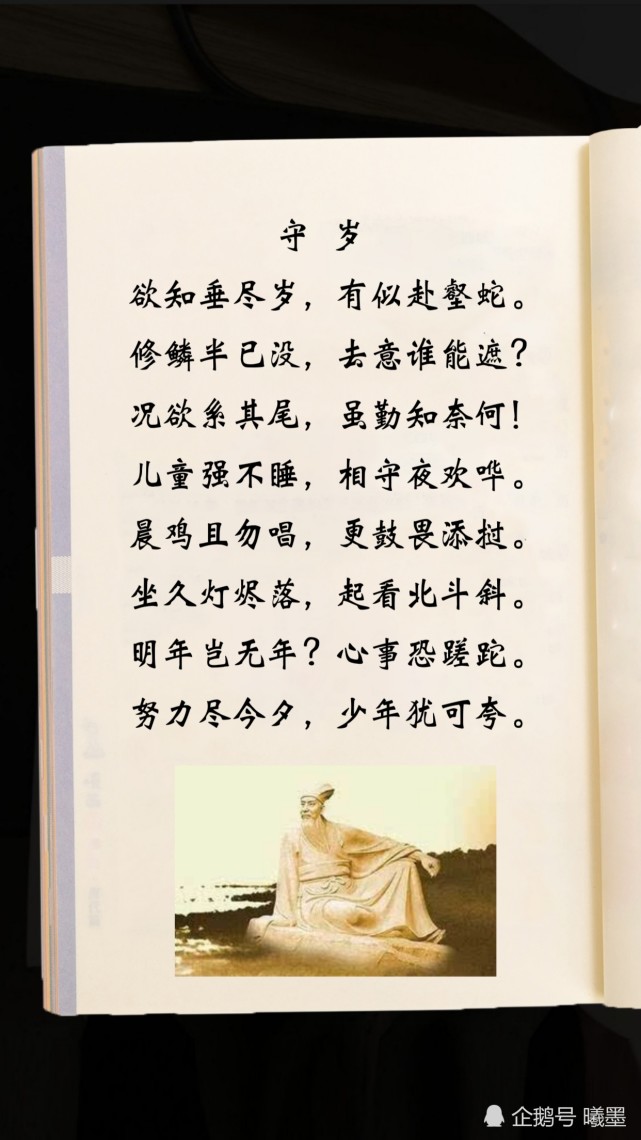 守 岁
欲知垂尽岁，有似赴壑蛇。
修鳞半已没，去意谁能遮？
况欲系其尾，虽勤知奈何！
儿童强不睡，相守夜欢哗。
晨鸡且勿唱，更鼓畏添挝。
坐久灯烬落，起看北斗斜。
明年岂无年？心事恐蹉跎。
努力尽今夕，少年犹可夸。
企鹅号 曦墨